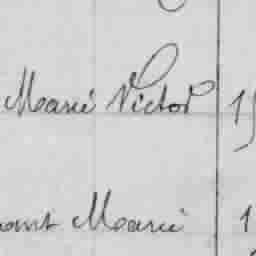 Marie Victor 1
Marie 1